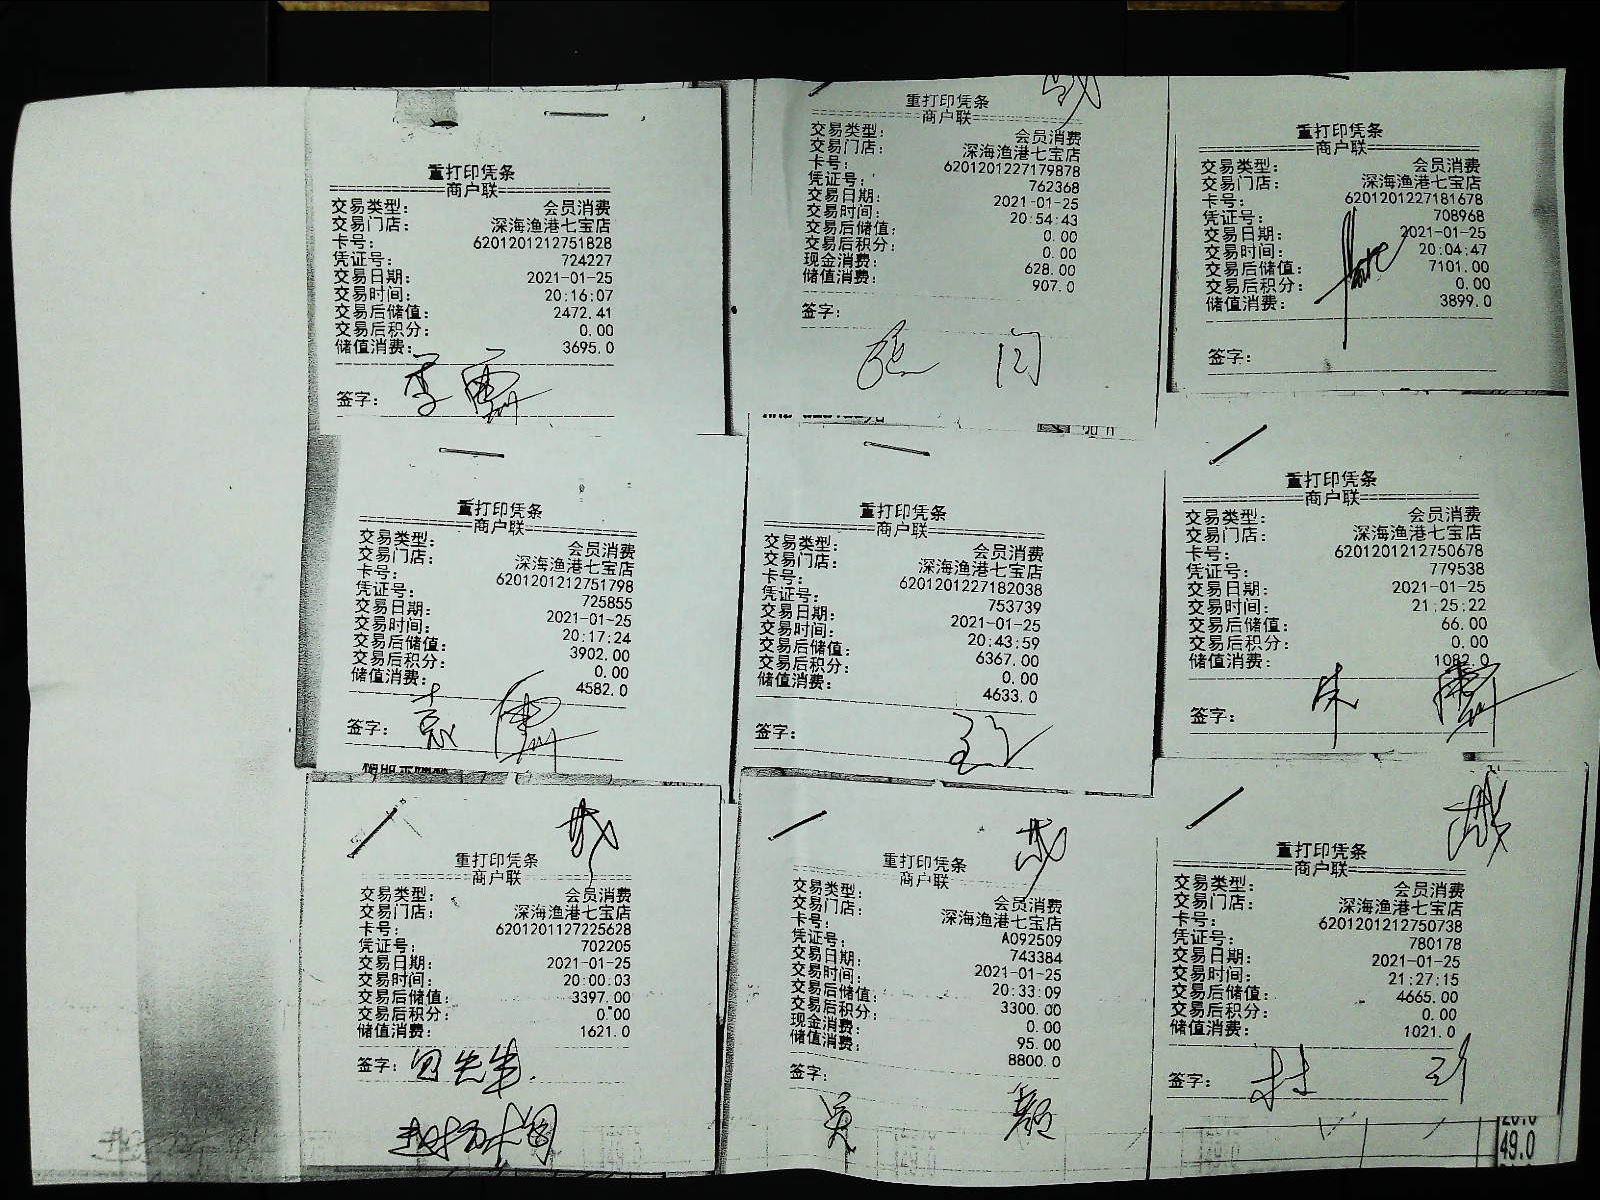 重打印凭条
商户联
交易类型: 会员消费
交易门店: 深海渔港七宝店
卡号: 6201201212751828
凭证号: 724227
交易日期: 2021-01-25
交易时间: 20:16:07
交易后储值: 2472.41
交易后积分: 0.00
储值消费: 3695.0
签字:
重打印凭条
商户联
交易类型: 会员消费
交易门店: 深海渔港七宝店
卡号: 6201201227179878
凭证号: 762368
交易日期: 2021-01-25
交易时间: 20:54:43
交易后储值: 0.00
交易后积分: 0.00
现金消费: 628.00
储值消费: 907.0
签字:
重打印凭条
商户联
交易类型: 会员消费
交易门店: 深海渔港七宝店
卡号: 6201201227181678
凭证号: 708968
交易日期: 2021-01-25
交易时间: 20:04:47
交易后储值: 7101.00
交易后积分: 0.00
储值消费: 3899.0
签字:
重打印凭条
商户联
交易类型: 会员消费
交易门店: 深海渔港七宝店
卡号: 6201201212751798
凭证号: 725855
交易日期: 2021-01-25
交易时间: 20:17:24
交易后储值: 3902.00
交易后积分: 0.00
储值消费: 4582.0
签字:
重打印凭条
商户联
交易类型: 会员消费
交易门店: 深海渔港七宝店
卡号: 6201201227182038
凭证号: 753739
交易日期: 2021-01-25
交易时间: 20:43:59
交易后储值: 6367.00
交易后积分: 0.00
储值消费: 4633.0
签字:
重打印凭条
商户联
交易类型: 会员消费
交易门店: 深海渔港七宝店
卡号: 6201201212750678
凭证号: 779538
交易日期: 2021-01-25
交易时间: 21:25:22
交易后储值: 66.00
交易后积分: 0.00
储值消费: 1082.0
签字: 朱
重打印凭条
商户联
交易类型: 会员消费
交易门店: 深海渔港七宝店
卡号: 6201201127225628
凭证号: 702205
交易日期: 2021-01-25
交易时间: 20:00:03
交易后储值: 3397.00
交易后积分: 0.00
储值消费: 1621.0
签字: 先生
重打印凭条
商户联
交易类型: 会员消费
交易门店: 深海渔港七宝店
卡号: A092509
凭证号: 743384
交易日期: 2021-01-25
交易时间: 20:33:09
交易后储值: 3300.00
交易后积分: 0.00
现金消费: 95.00
储值消费: 8800.0
签字:
吴
重打印凭条
商户联
交易类型: 会员消费
交易门店: 深海渔港七宝店
卡号: 6201201212750738
凭证号: 780178
交易日期: 2021-01-25
交易时间: 21:27:15
交易后储值: 4665.00
交易后积分: 0.00
储值消费: 1021.0
签字:
49.0